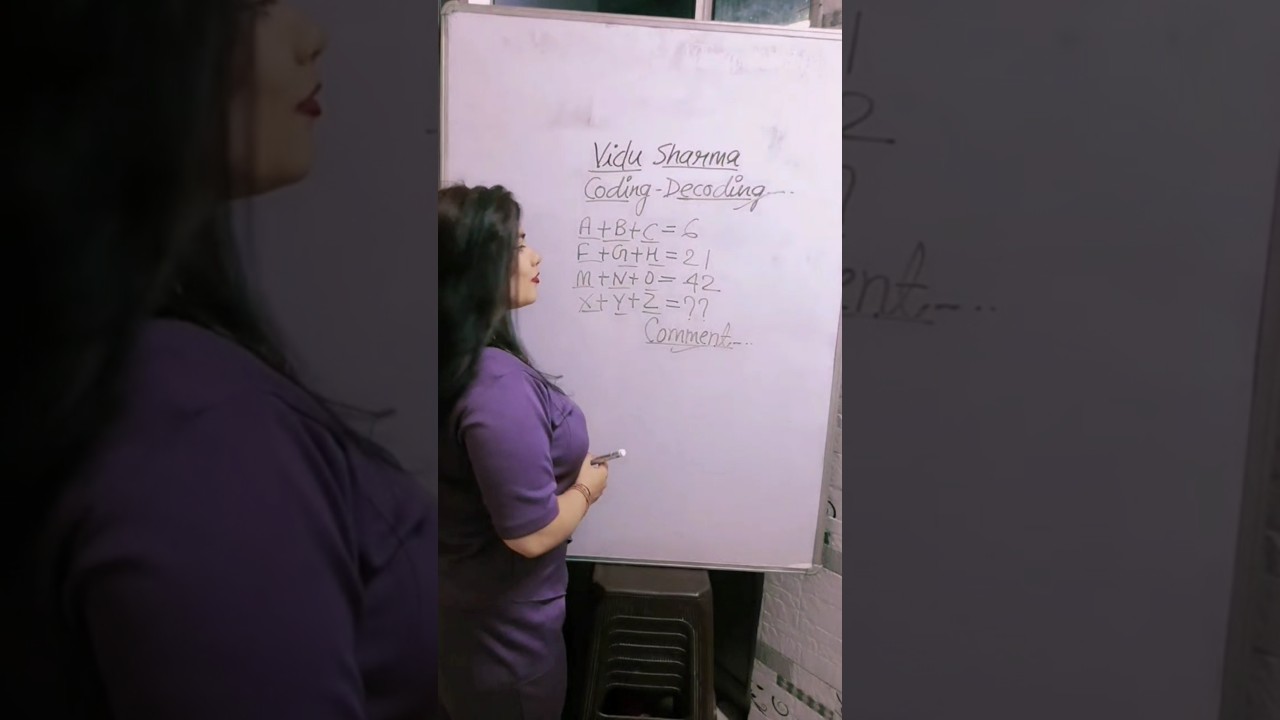 Vidu Sharma
Coding-Decoding...
A+B+C=6
F+G+H=21
M+N+O=42
X+Y+Z=??
Comment....